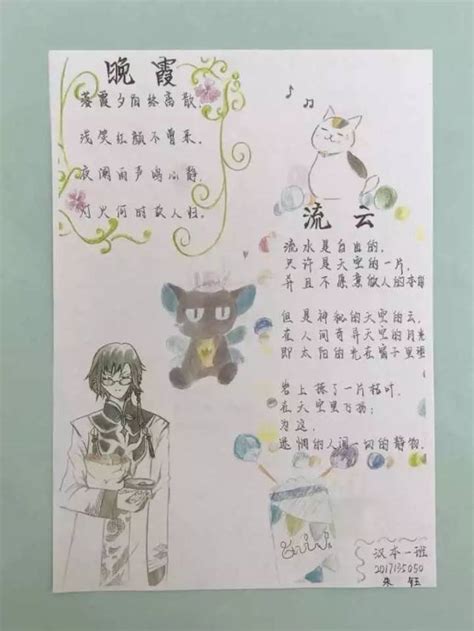 晚霞
落霞夕阳终离散
浅笑红颜不曾来,
夜阑雨声喝以静.
灯火何时故人归.
流云
流水是自由的,
只许是天空的一片,
并且不原意做人的本
但是神秘的天空的云,
在人间奇异天空的月光
即太阳的光在篱子里
岩上掠了一片枯叶.
在天空里飞扬;
为这.
遗惘的人间一切的静物.
汉本一班
2017135050
朱钰